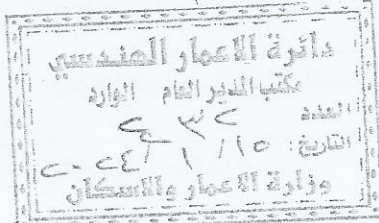 دائرة الاعمار الهندسي
مكتب المدير العام الوارد
العدد
التاريخ: ١٥ / ١ / ٢٠٢٤
وزارة الاعمار والاسكان